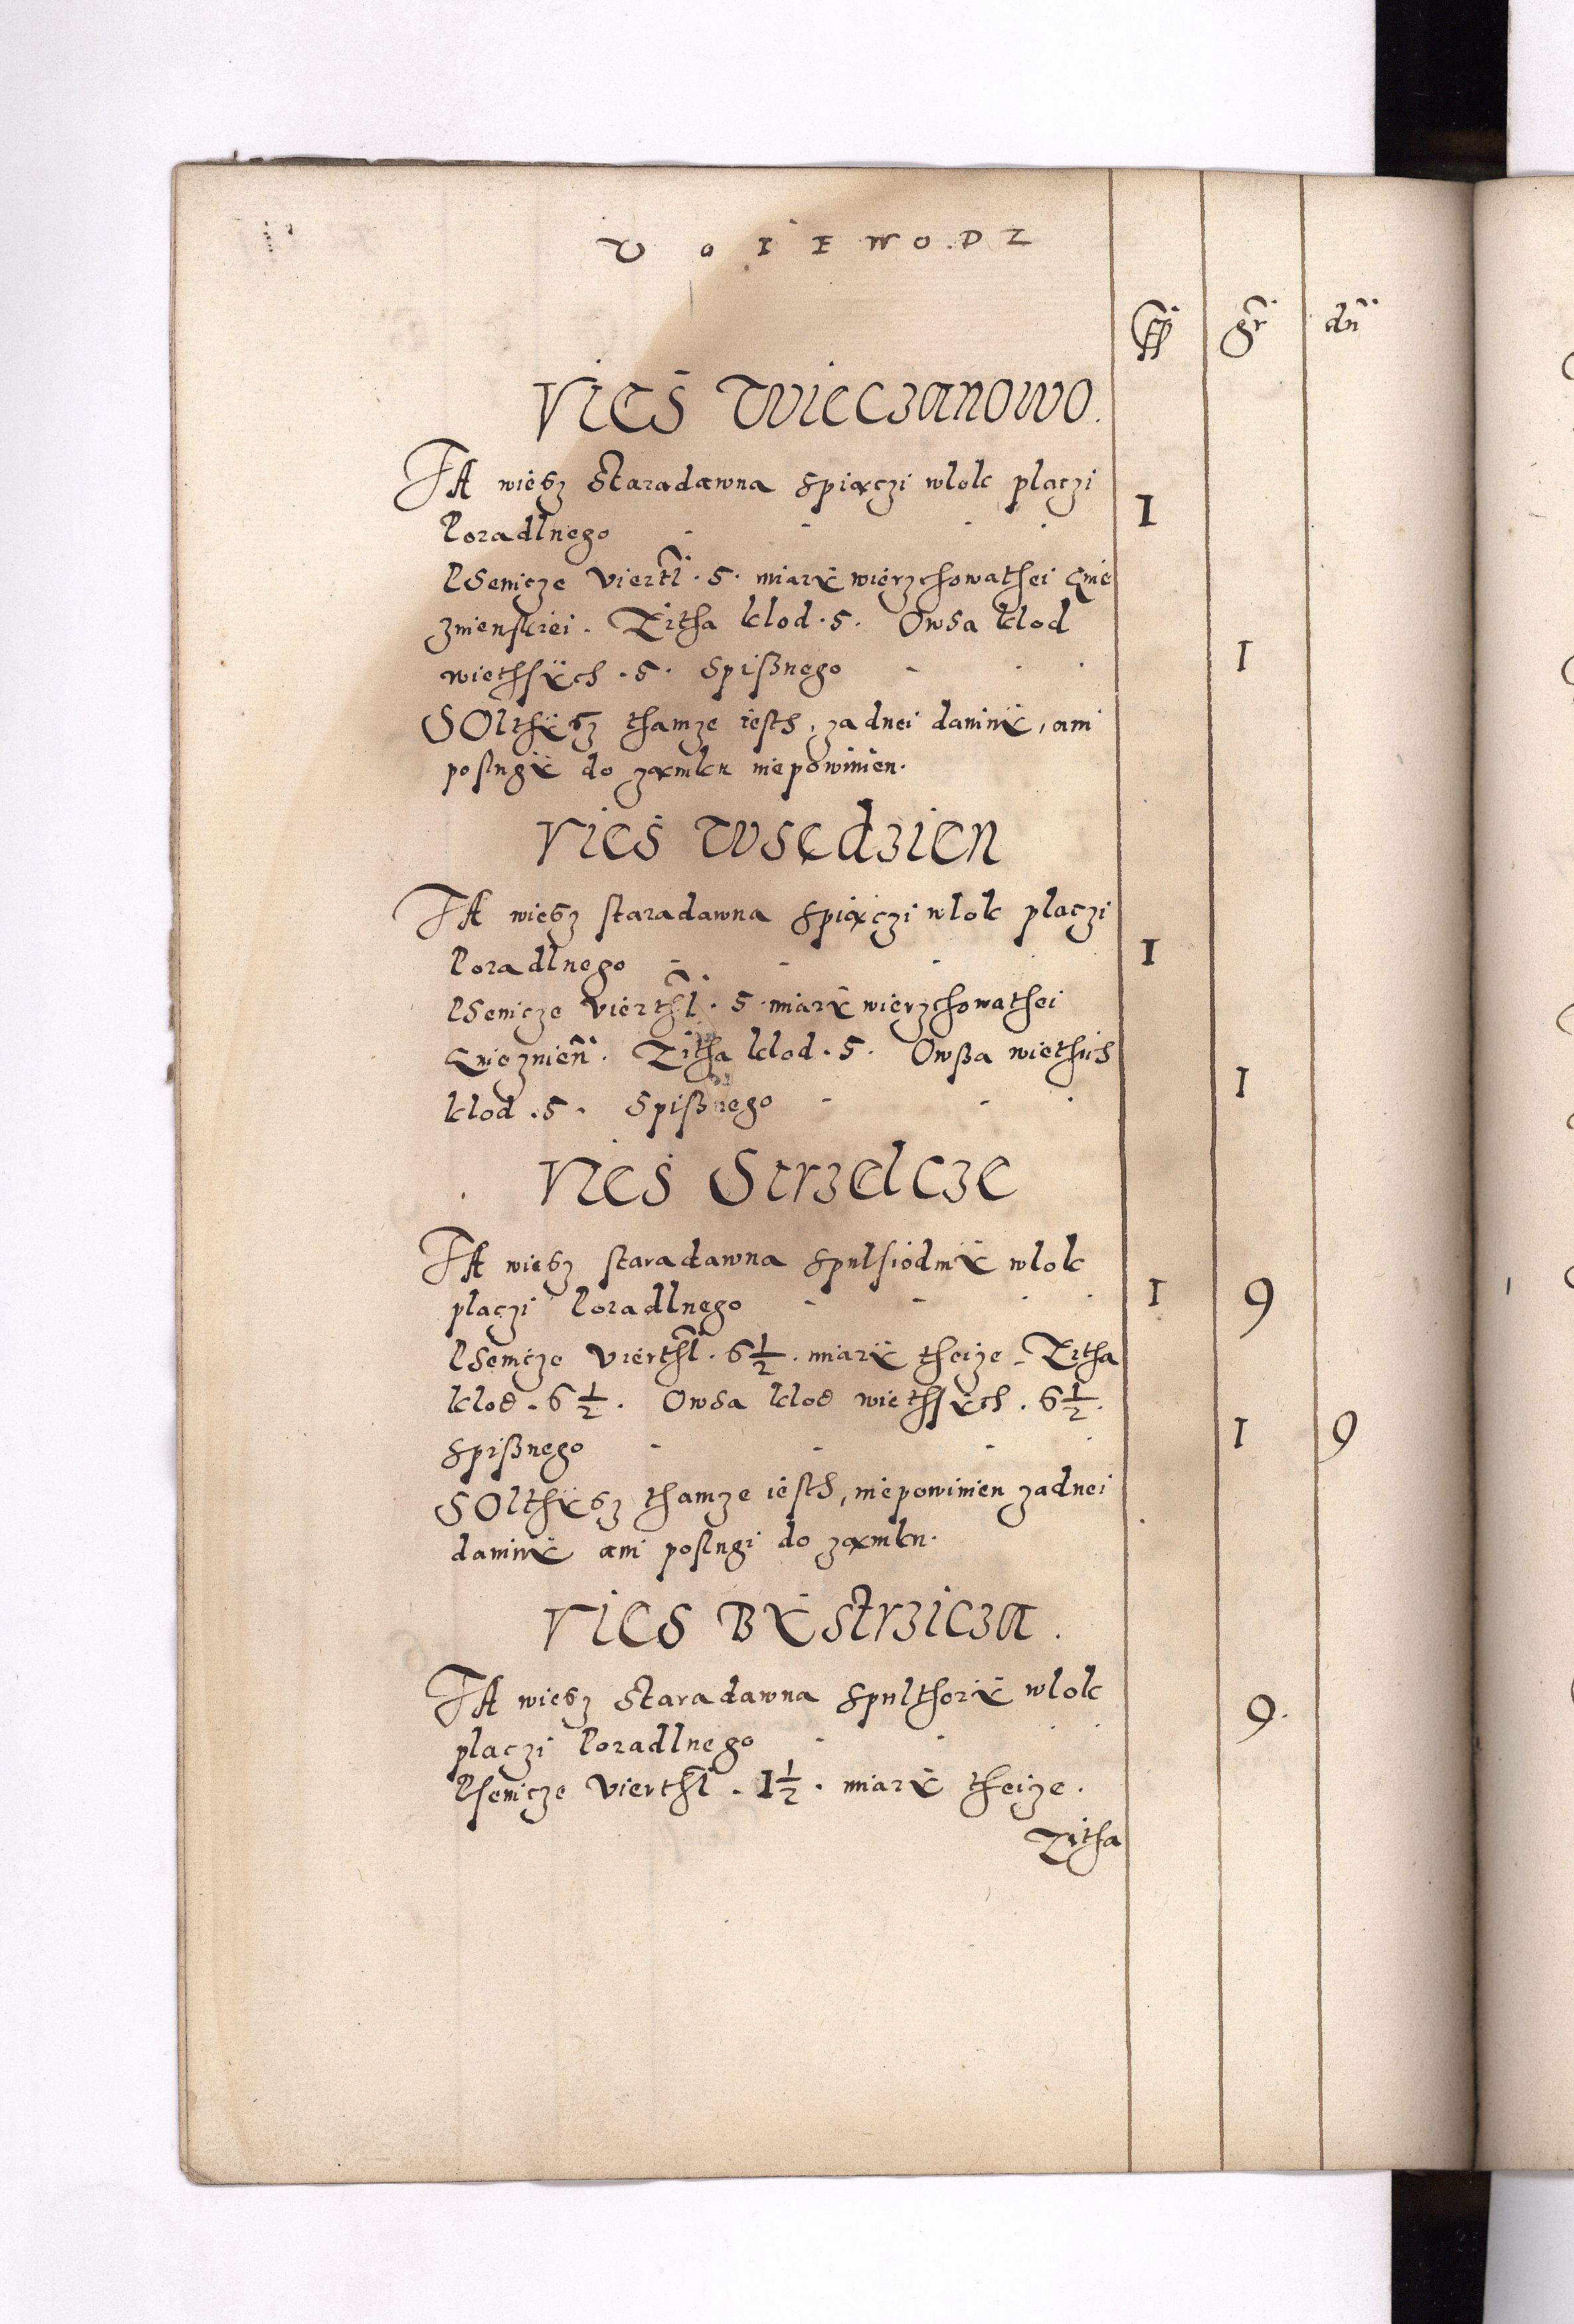 VOIEWODZ
gr dñ
VIES WIECZANOWO.
TA wiesz Staradawna spiączi wlok placzi
Poradlnego - - - - I
PSenicze viertl . 5 . miarÿ wierzchowathei Gnie
znenskiei . Zitha klod . 5 . Owsa klod
wiethsÿch . 5 . Spißnego - - - I
SOlthÿsz thamze iesth, zadnei daninÿ, ani
poslugÿ do zamku niepowinien.
VIES WSEDZIEN
TA wiesz staradawna spiączi wlok placzi
Poradlnego - - - - I
PSenicze vierthl . 5 . miarÿ wierzchowathei
Gnieznien . Zitha klod . 5 . Owßa wiethsich
klod . 5 . Spißnego - - - I
VIES STRZELCZE
TA wiesz staradawna spulsiodmÿ wlok
placzi Poradlnego - - - - I 9
PSenicze vierthl . 6 1/2 . miarÿ theize . Zitha
klod . 6 1/2 . Owsa klod wiethsÿch . 6 1/2 .
Spißnego - - - - I 9
SOlthÿsz thamze iesth, niepowinien zadnei
daninÿ ani poslugi do zamku.
VIES BÿSTRZICZA .
TA wiesz Staradawna spulthorÿ wlok
placzi Poradlnego - - - - 9 .
Psenicze vierthl . 1 1/2 . miarÿ theize .
Zitha